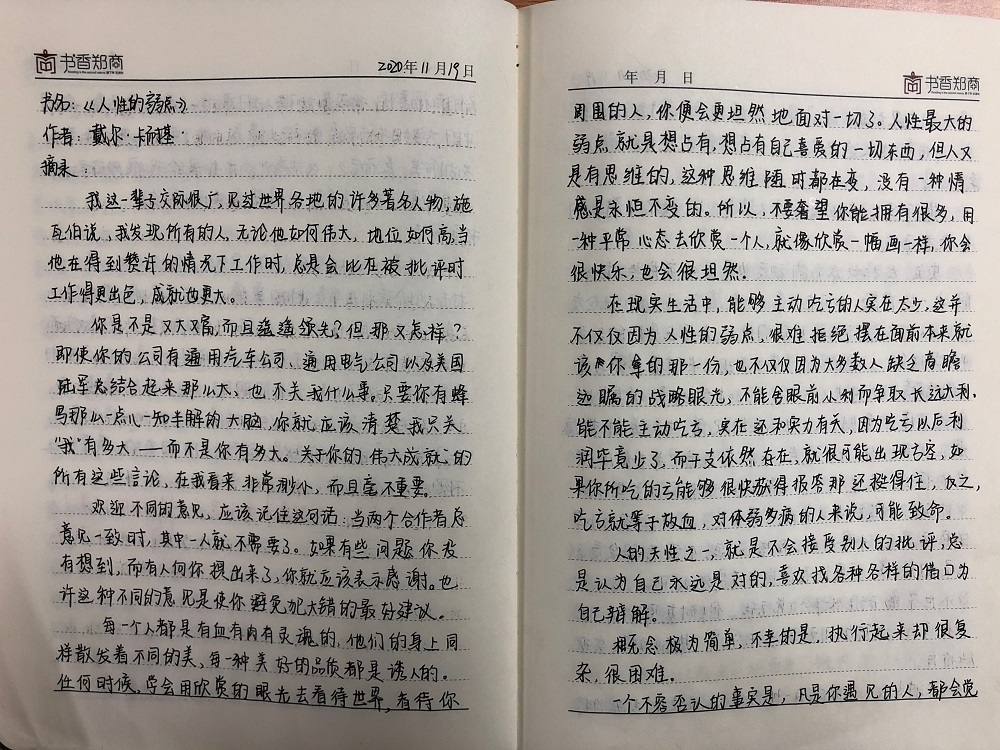 书香郑商
2020年11月19日
书名:《人性的弱点》
作者:戴尔·卡耐基
摘录:
我这一辈子交际很广,见过世界各地的许多著名人物,施
瓦伯说,我发现所有的人,无论他如何伟大,地位如何高,当
他在得到赞许的情况下工作时,总是会比在被批评时
工作得更出色,成就也更大。
你是不是又大又高,而且遥遥领先?但那又怎样?
即使你的公司有通用汽车公司、通用电气公司以及美国
陆军总结合起来那么大、也不关我什么事。只要你有蜂
鸟那么一点儿一知半解的大脑,你就应该清楚我只关
“我”有多大,——而不是你有多大。关于你的伟大成就的
所有这些言论,在我看来非常渺小,而且毫不重要。
欢迎不同的意见,应该记住这句话:当两个合作者总
意见一致时,其中一人就不需要了。如果有些问题你没
有想到,而有人向你提出来了,你就应该表示感谢。也
许这种不同的意见是使你避免犯大错的最好建议。
每一个人都是有血有肉有灵魂的,他们的身上同
样散发着不同的美,每一种美好的品质都是诱人的。
任何时候,学会用欣赏的眼光去看待世界,看待你
年 月 日
书香郑商
周围的人,你便会更坦然地面对一切了。人性最大的
弱点就是想占有,想占有自己喜爱的一切东西,但人又
是有思维的,这种思维随时都在变,没有一种情
感是永恒不变的。所以,不要奢望你能拥有很多,用
一种平常心态去欣赏一个人,就像欣赏一幅画一样,你会
很快乐,也会很坦然。
在现实生活中,能够主动吃亏的人实在太少,这并
不仅仅因为人性的弱点,很难拒绝摆在面前本来就
该你拿的那一份,也不仅仅因为大多数人缺乏高瞻
远瞩的战略眼光,不能舍眼前小利而争取长远大利.
能不能主动吃亏,实在还和实力有关,因为吃亏以后利
润毕竟少了,而开支依然存在,就很可能出现亏空,如
果你所吃的亏能够很快获得报答那还挺得住,反之,
吃亏就等于放血,对体弱多病的人来说,可能致命。
人的天性之一,就是不会接受别人的批评,总
是认为自己永远是对的,喜欢找各种各样的借口为
自己辩解。
概念极为简单,不幸的是,执行起来却很复
杂,很困难。
一个不容否认的事实是,凡是你遇见的人,都会觉